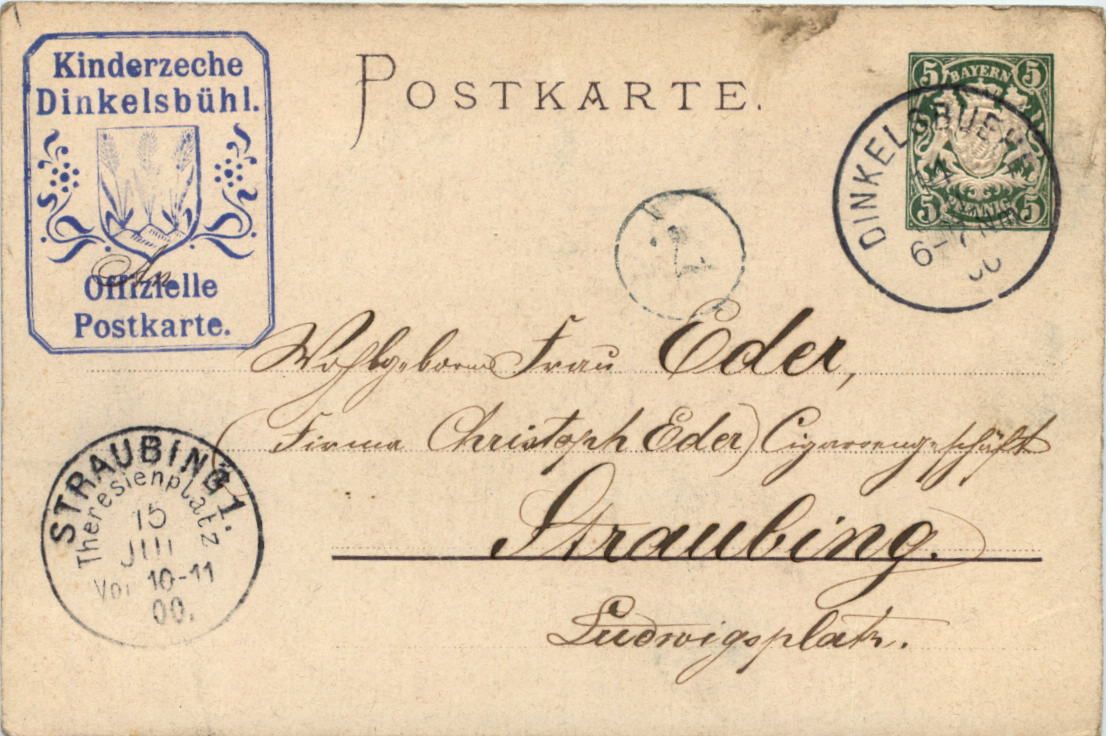 Kinderzeche
Dinkelsbühl.
An
Offizielle
Postkarte.
POSTKARTE.
5 BAYERN 5
5 PFENNIG 5
DINKELSBUEHL
6-7 NM
00
2
Wohlgeboren Frau Eder,
(Firma Christoph Eder) Cigarrengeschäft
Straubing.
Ludwigsplatz.
STRAUBING 1.
Theresienplatz
15
JUL
Vor 10-11
00.